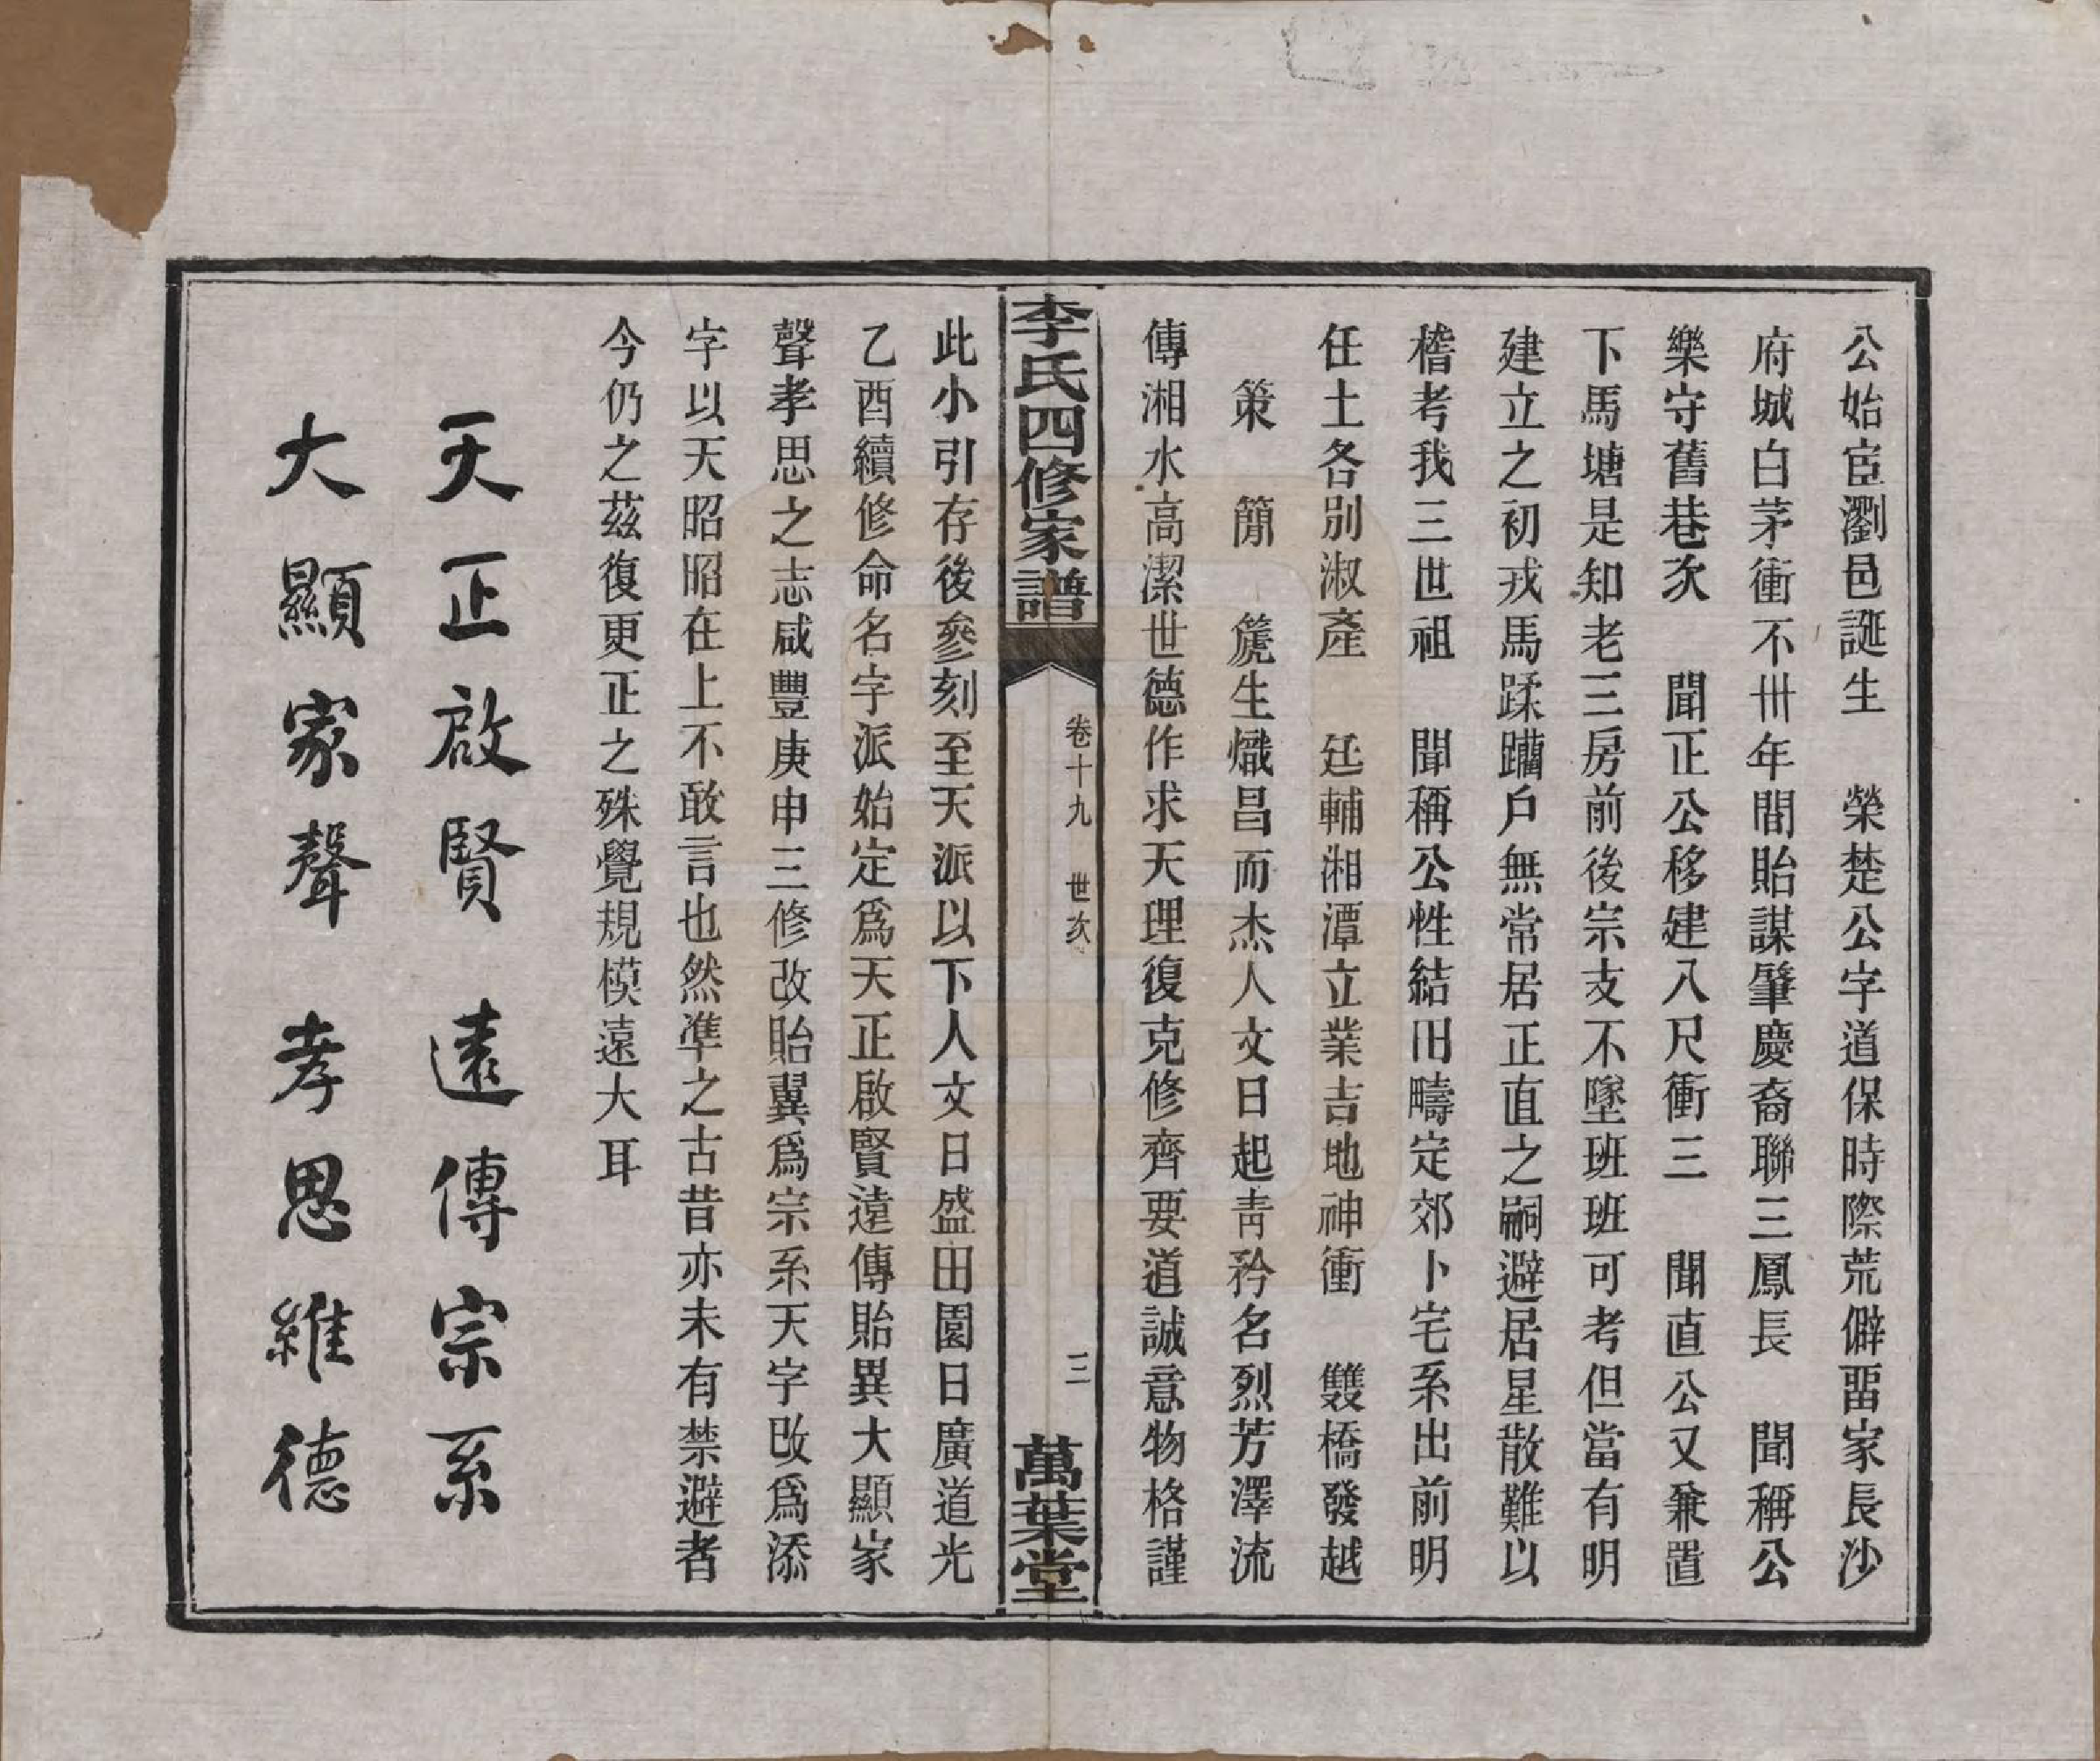 公始宦瀏邑誕生　榮楚公字道保時際荒僻畱家長沙
府城白茅衝不卅年間貽謀肇慶裔聯三鳳長　聞稱公
樂守舊巷次　聞正公移建入尺衝三　聞直公又兼置
下馬塘是知老三房前後宗支不墜班班可考但當有明
建立之初戎馬蹂躪戶無常居正直之嗣避居星散難以
稽考我三世祖　聞稱公性結田疇定郊卜宅系出前明
任土各別淑產　廷輔湘潭立業吉地神衝　雙橋發越
策　簡　篪生熾昌而杰人文日起青矜名烈芳澤流
傳湘水高潔世德作求天理復克修齊要道誠意物格謹
李氏四修家譜
卷十九　世次
三
萬葉堂
此小引存後參刻至天派以下人文日盛田園日廣道光
乙酉續修命名字派始定爲天正啟賢遠傳貽異大顯家
聲孝思之志咸豐庚申三修改貽翼爲宗系天字改爲添
字以天昭昭在上不敢言也然準之古昔亦未有禁避者
今仍之茲復更正之殊覺規模遠大耳
天正啟賢　遠傳宗系
大顯家聲　孝思維德